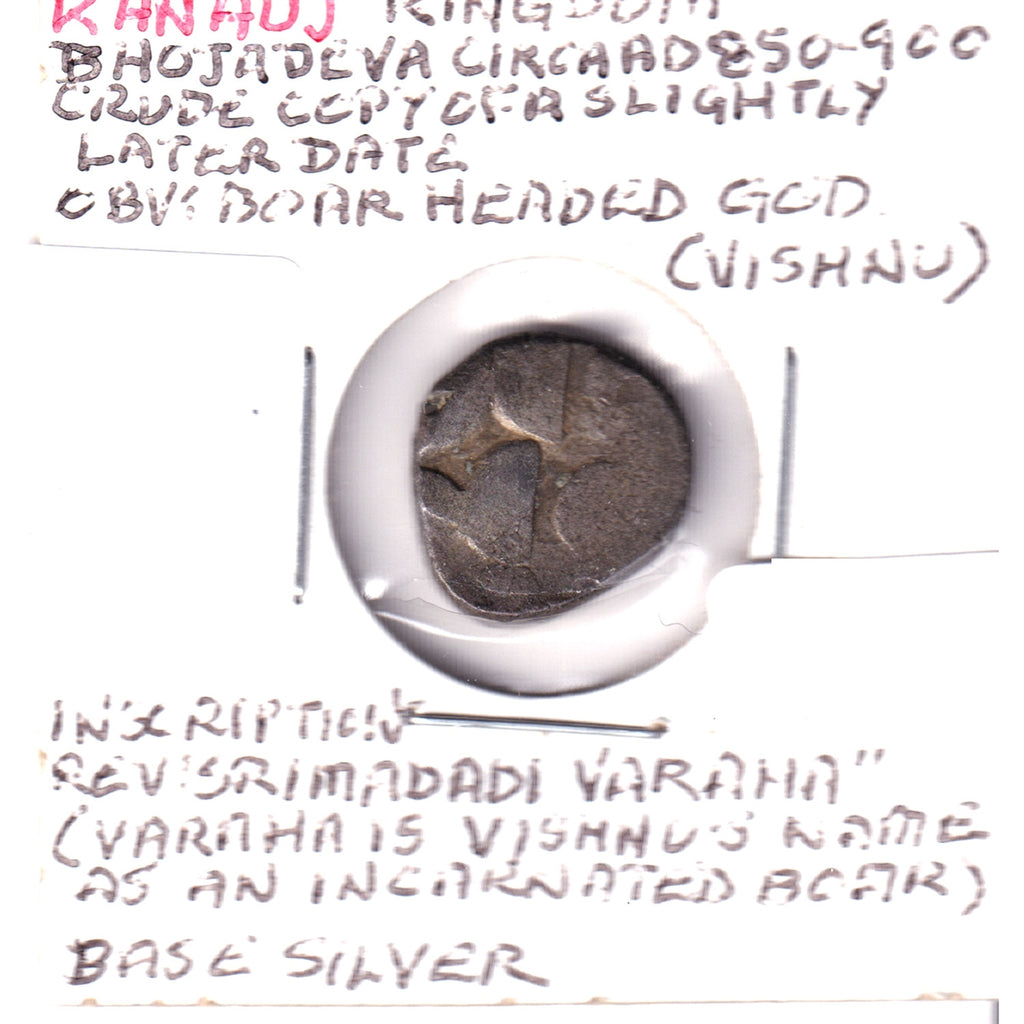 KANAUJ KINGDOM
BHOJADEVA CIRCA AD 850-900
CRUDE COPY OF A SLIGHTLY
LATER DATE
OBV: BOAR HEADED GOD.
(VISHNU)
INSCRIPTION
REV: SRIMADADI VARAHA"
(VARAHA IS VISHNU'S NAME
AS AN INCARNATED BOAR)
BASE SILVER